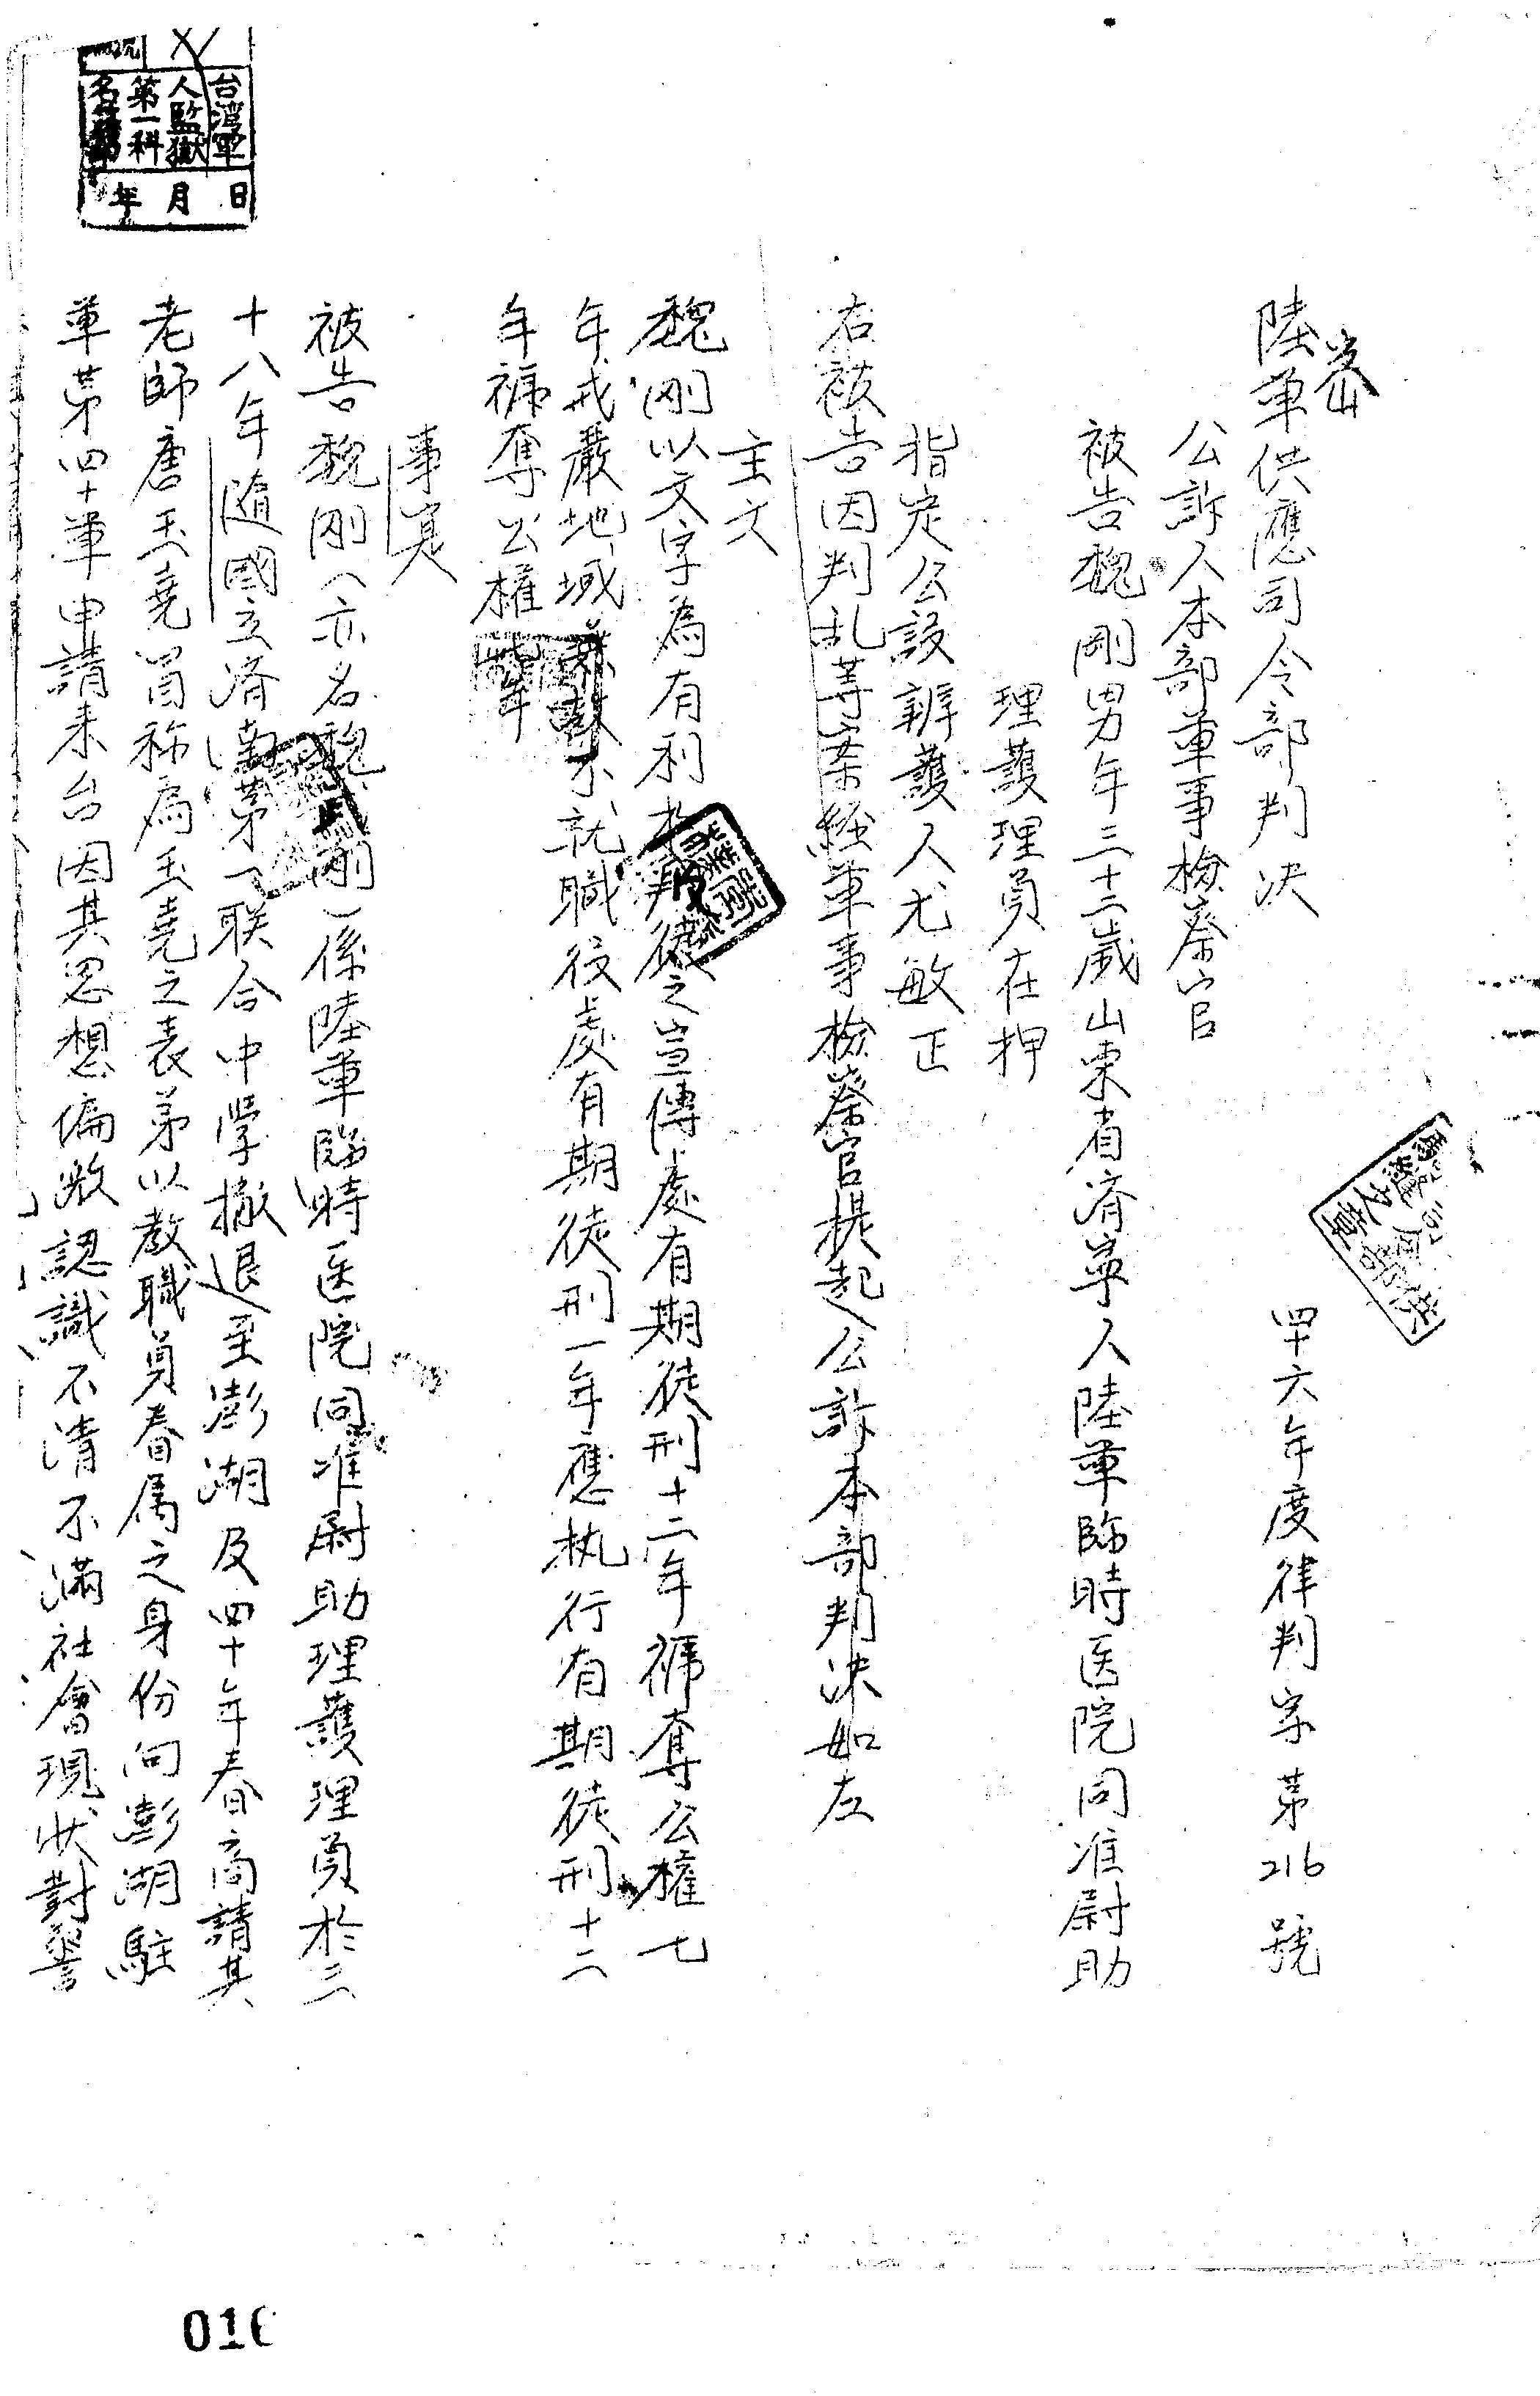 陸軍供應司令部判決
四十六年度律判字第216號
公訴人本部軍事檢察官
被告魏剛男年三十二歲山東省濟寧人陸軍臨時医院同准尉助
理護理員在押
指定公設辯護人尤敏正
右被告因判乱等案経軍事檢察官提起公訴本部判決如左
主文
魏剛以文字為有利於叛徒之宣傳處有期徒刑十二年褫奪公權七
年戒嚴地域無故不就職役處有期徒刑一年應执行有期徒刑十二
年褫奪公權
事实
被告魏刚(亦名魏剛)係陸軍臨時医院同准尉助理護理員於三
十八年隨國立濟南第一联合中學撤退至澎湖及四十年春商請其
老師唐玉堯冒称為玉堯之表弟以教職員眷属之身份向澎湖駐
軍第四十軍申請来台因其思想偏激認識不清不滿社會現狀對警
台灣軍
人監獄
第一科
年 月 日
016